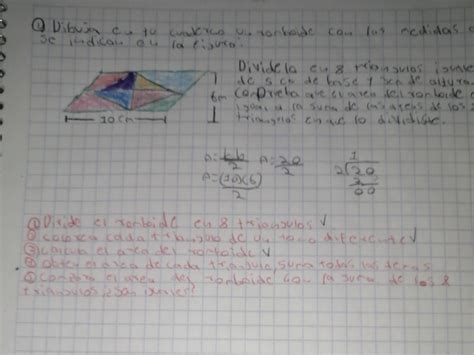 ① Dibuja en tu cuaderno un romboide con las medidas
se indican en la figura.
Dividela en 8 triangulos iguales
de 5 cm de base y 3cm de altura
Comprueba que el area del romboide e
igual a la suma de las areas de los 8
triangulos en que lo dividiste.
6m
10cm
A=bh/2 A=20/2
A=(10)(6)/2
1
2√20
2
00
① Divide el romboide en 8 triangulos ✓
② colorea cada triangulo de un tono diferente ✓
③ calcula el area del romboide ✓
④ obten el area de cada triangulo, suma todos las
⑤ compara el area del romboide con la suma de los 8
triangulos ¿son iguales?